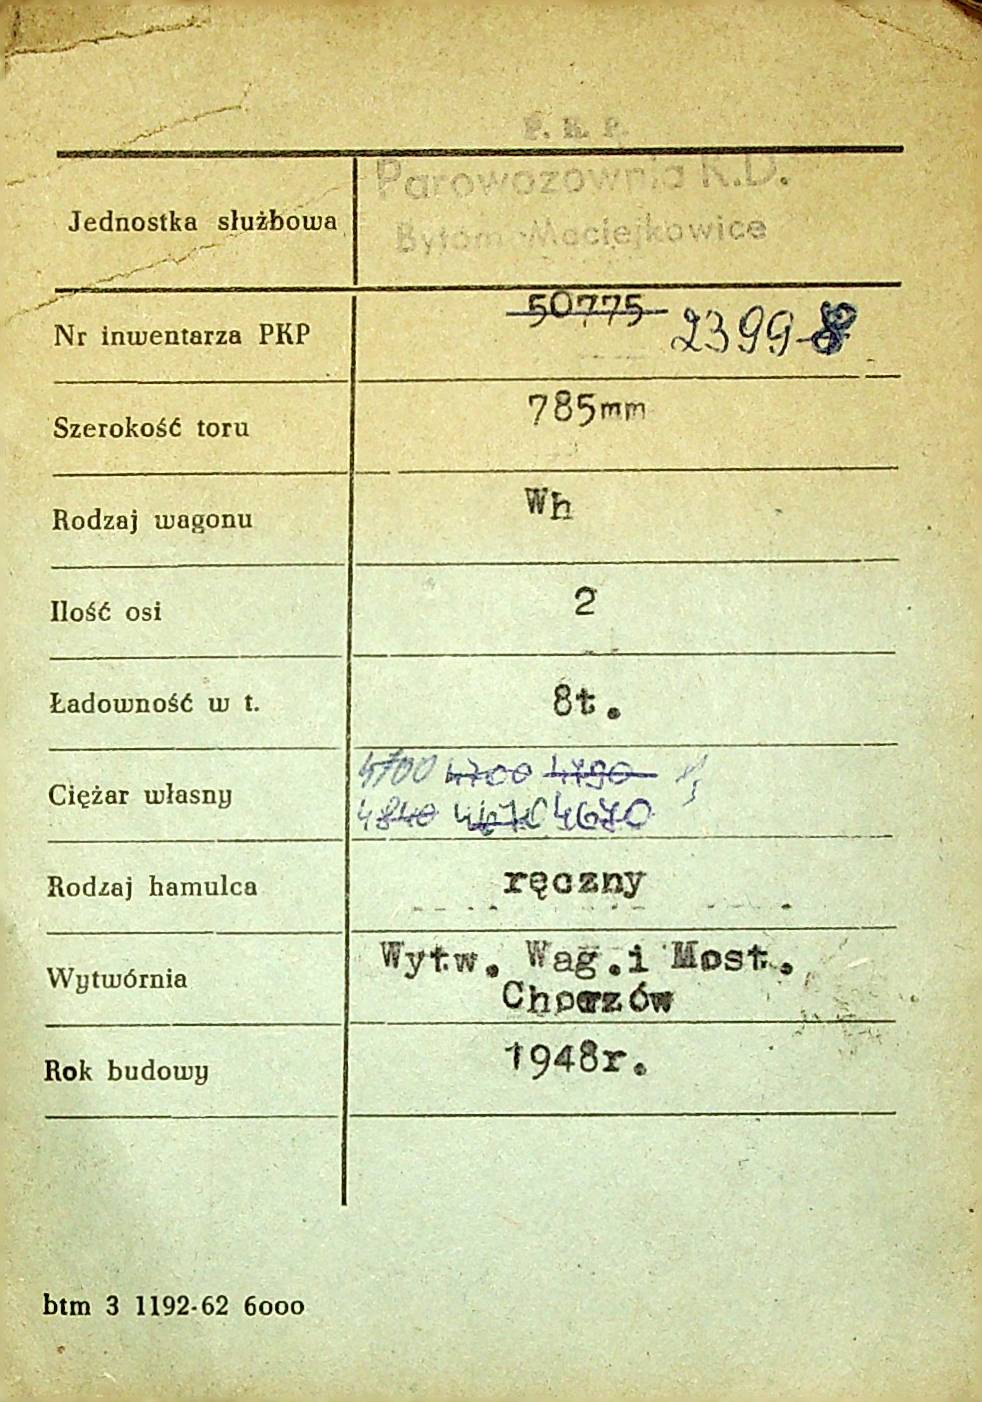 P. K. P.
Parowozownia K.D.
Jednostka służbowa
Bytom Maciejkowice
50775
Nr inwentarza PKP 23998
Szerokość toru 785mm
Rodzaj wagonu Wh
Ilość osi 2
Ładowność w t. 8t.
4700 4700 4790
Ciężar własny
4840 4670 4670
Rodzaj hamulca ręczny
Wytw. Wag.i Most.
Wytwórnia
Chorzów
Rok budowy 1948r.
btm 3 1192-62 6000